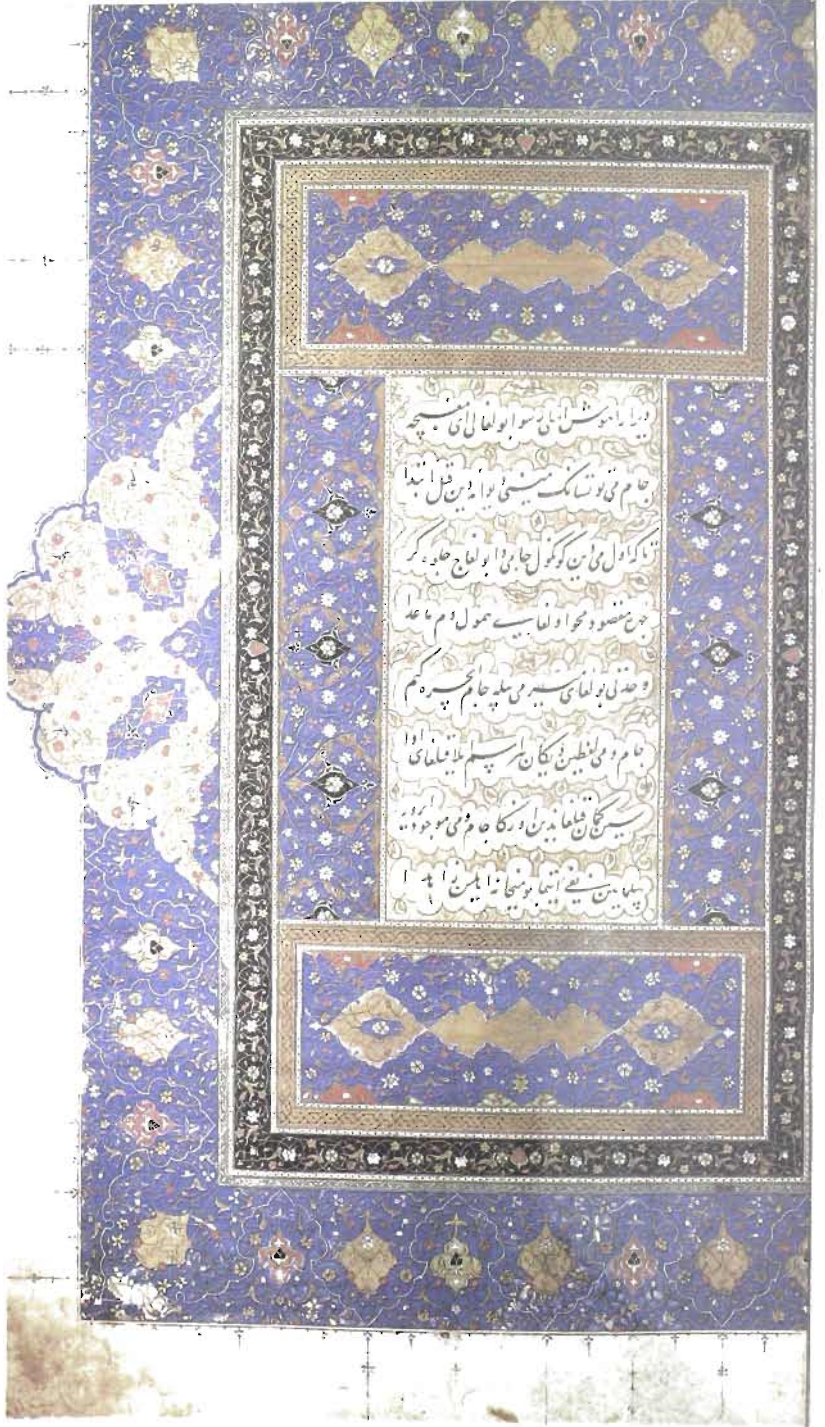 دیر ارا هوش اهلی رسوا بولغالی ای مغبچه
جام می توتسانک مینی دیوانه دین قیل ابتدا
تا که اول می دین کونکول جامی دا بولغاچ جلوه گر
چهره مقصود محو اولغای همول دم ماعدا
وحدتی بولغای میسر می بیله جام ایچره کیم
جام و می لفظین دیکان بیر اسم ایلا قیلغای ادا
سین کمان قیلغاندین اوزکا جام و می موجود ایرور
بیلمایین نفی ایتما بو میخانه اهلین زاهدا